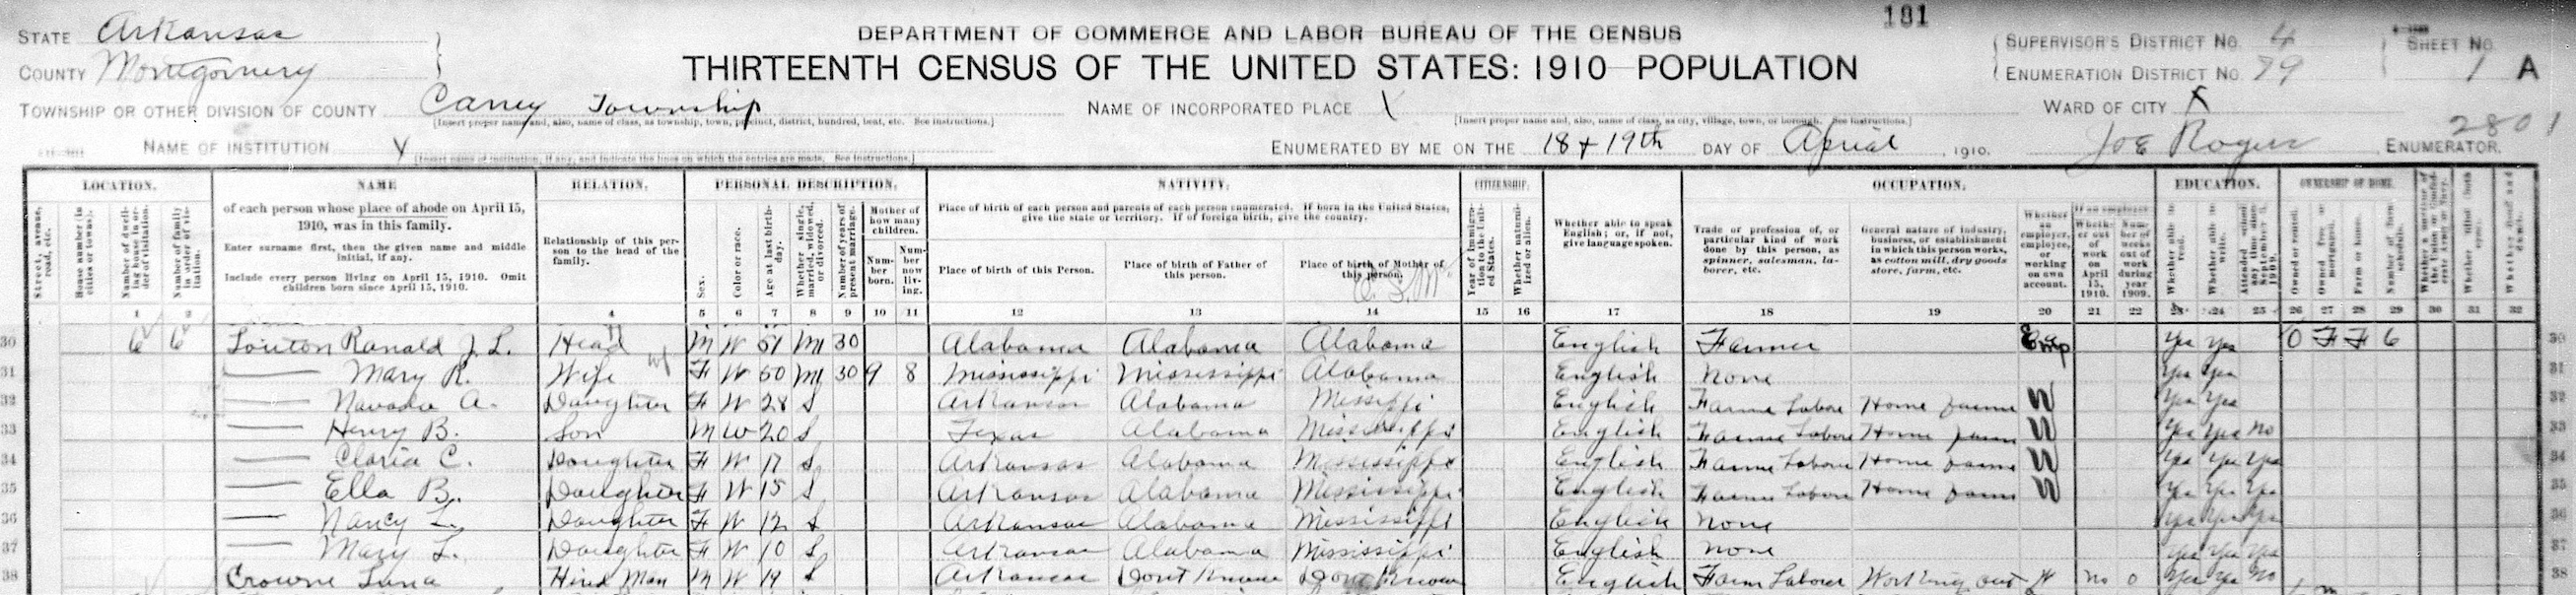 181
STATE Arkansas
COUNTY Montgomery
DEPARTMENT OF COMMERCE AND LABOR-BUREAU OF THE CENSUS
THIRTEENTH CENSUS OF THE UNITED STATES: 1910 POPULATION
SUPERVISOR'S DISTRICT NO. 4
ENUMERATION DISTRICT NO. 79
SHEET NO. 1 A
TOWNSHIP OR OTHER DIVISION OF COUNTY Caney Township
[Insert proper name and, also, name of class, as township, town, precinct, district, hundred, beat, etc. See instructions.]
NAME OF INCORPORATED PLACE X
[Insert proper name and, also, name of class, as city, village, town, or borough. See instructions.]
WARD OF CITY X
NAME OF INSTITUTION X
[Insert name of institution, if any, and indicate the lines on which the entries are made. See instructions.]
ENUMERATED BY ME ON THE 18 + 19th DAY OF April, 1910.
Joe Rogers ENUMERATOR.
2801
LOCATION. NAME RELATION. PERSONAL DESCRIPTION. NATIVITY. CITIZENSHIP. OCCUPATION. EDUCATION. OWNERSHIP OF HOME.
Street, avenue, road, etc.
House number (in cities or towns).
Number of dwelling house in order of visitation.
Number of family in order of visitation.
of each person whose place of abode on April 15, 1910, was in this family.
Enter surname first, then the given name and middle initial, if any.
Include every person living on April 15, 1910. Omit children born since April 15, 1910.
Relationship of this person to the head of the family.
Sex.
Color or race.
Age at last birthday.
Whether single, married, widowed, or divorced.
Number of years of present marriage.
Mother of how many children.
Number born.
Number now living.
Place of birth of each person and parents of each person enumerated. If born in the United States, give the state or territory. If of foreign birth, give the country.
Place of birth of this Person.
Place of birth of Father of this person.
Place of birth of Mother of this person.
Year of immigration to the United States.
Whether naturalized or alien.
Whether able to speak English; or, if not, give language spoken.
Trade or profession of, or particular kind of work done by this person, as spinner, salesman, laborer, etc.
General nature of industry, business, or establishment in which this person works, as cotton mill, dry goods store, farm, etc.
Whether an employer, employee, or working on own account.
If an employee—
Whether out of work on April 15, 1910.
Number of weeks out of work during year 1909.
Whether able to read.
Whether able to write.
Attended school any time since September 1, 1909.
Owned or rented.
Owned free or mortgaged.
Farm or house.
Number of farm schedule.
Whether a survivor of the Union or Confederate Army or Navy.
Whether blind (both eyes).
Whether deaf and dumb.
1 2 4 5 6 7 8 9 10 11 12 13 14 15 16 17 18 19 20 21 22 23 24 25 26 27 28 29 30 31 32
30 6 6 Ranald J. L. Head M W 51 M1 30 Alabama Alabama Alabama English Farmer Emp Yes Yes O F F 6 30
31 Mary R. Wife F W 50 M1 30 9 8 Mississippi Mississippi Alabama English None Yes Yes 31
32 Navada A. Daughter F W 28 S Arkansas Alabama Missippi English Farme Labore Home farme W Yes Yes 32
33 Henry B. Son M W 20 S Texas Alabama Mississippi English Farme Labore Home farm W Yes Yes No 33
34 Claria C. Daughter F W 17 S Arkansas Alabama Mississippi English Farme Labore Home farme W Yes Yes Yes 34
35 Ella B. Daughter F W 15 S Arkansas Alabama Mississippi English Farme Labore Home farm W Yes Yes Yes 35
36 Nancy L. Daughter F W 12 S Arkansas Alabama Mississippi English None Yes Yes Yes 36
37 Mary L. Daughter F W 10 S Arkansas Alabama Mississippi English None Yes Yes Yes 37
38 Crowne Luna Hired Man M W 19 S Arkansas Dont Know Dont Know English Farm Laborer Working out W No 0 Yes Yes No 38